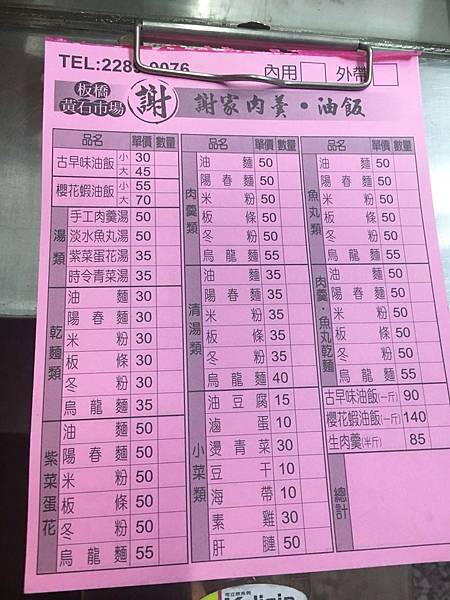 TEL:228 0076
內用 外帶
板橋
黃石市場
謝
謝家肉羹·油飯
品名 單價 數量
古早味油飯 小 30
大 45
櫻花蝦油飯 小 55
大 70
湯類
手工肉羹湯 50
淡水魚丸湯 50
紫菜蛋花湯 35
時令青菜湯 35
乾麵類
油麵 30
陽春麵 30
米粉 30
板條 30
冬粉 30
烏龍麵 35
紫菜蛋花
油麵 50
陽春麵 50
米粉 50
板條 50
冬粉 50
烏龍麵 55
品名 單價 數量
肉羹類
油麵 50
陽春麵 50
米粉 50
板條 50
冬粉 50
烏龍麵 55
清湯類
油麵 35
陽春麵 35
米粉 35
板條 35
冬粉 35
烏龍麵 40
小菜類
油豆腐 15
滷蛋 10
燙青菜 30
豆干 10
海帶 10
素雞 30
肝腱 50
品名 單價 數量
魚丸類
油麵 50
陽春麵 50
米粉 50
板條 50
冬粉 50
烏龍麵 55
肉羹·魚丸乾麵
油麵 50
陽春麵 50
米粉 50
板條 50
冬粉 50
烏龍麵 55
古早味油飯(一斤) 90
櫻花蝦油飯(一斤) 140
生肉羹(半斤) 85
總計